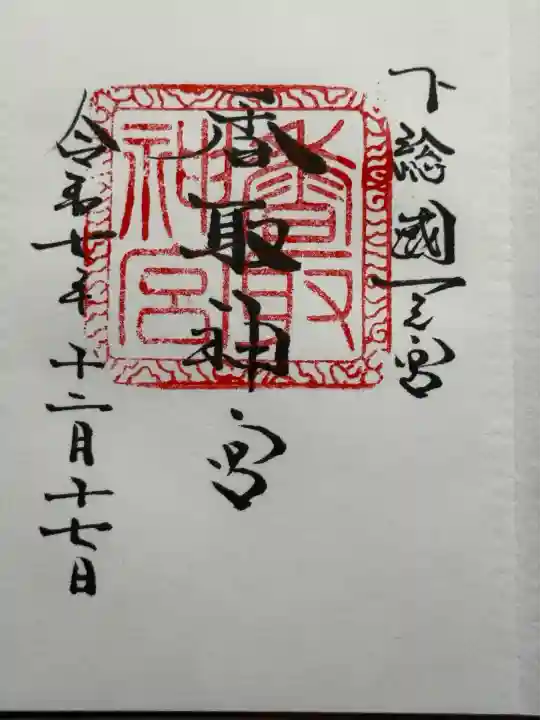 下総國一之宮
香取神宮
香取神宮
令和七年十二月十七日